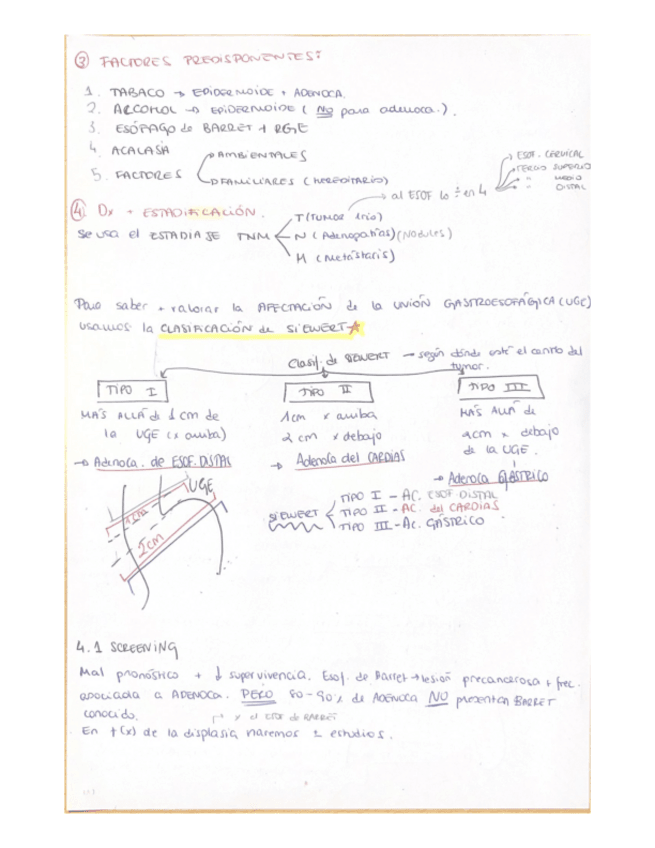 ③ FACTORES PREDISPONENTES:
1. TABACO → EPIDERMOIDE + ADENOCA.
2. ALCOHOL → EPIDERMOIDE (NO para adenoca.).
3. ESÓFAGO de BARRET + RGE
4. ACALASIA
5. FACTORES
AMBIENTALES
FAMILIARES (HEREDITARIO)
→ al ESOF lo ÷ en 4
ESOF. CERVICAL
TERCIO SUPERIOR
" MEDIO
" DISTAL
④ Dx + ESTADIFICACIÓN.
Se usa el ESTADIAJE TNM
T (TUMOR 1rio)
N (Adenopatías) (NODULES)
M (Metástasis)
Para saber + valorar la AFECTACIÓN de la UNIÓN GASTROESOFÁGICA (UGE)
usamos la CLASIFICACIÓN de SIEWERT ★
Clasif. de SIEWERT → según dónde esté el centro del
tumor.
TIPO I
MÁS ALLÁ de 1 cm de
la UGE (x arriba)
→ Adenoca. de ESOF. DISTAL
TIPO II
1cm x arriba
2 cm x debajo
→ Adenoca del CARDIAS
TIPO III
MÁS ALLÁ de
2cm x debajo
de la UGE.
→ Adenoca GÁSTRICO
UGE
1cm
2cm
SIEWERT
TIPO I – AC. ESOF. DISTAL
TIPO II – AC. del CARDIAS
TIPO III – AC. GÁSTRICO
4.1 SCREENING
Mal pronóstico + ↓ supervivencia. Esof. de Barret → lesión precancerosa + frec.
asociada a ADENOCA. PERO 80-90% de ADENOCA NO presentan BARRET
conocido.
x el ESOF de BARRET
En f(x) de la displasia haremos 2 estudios.